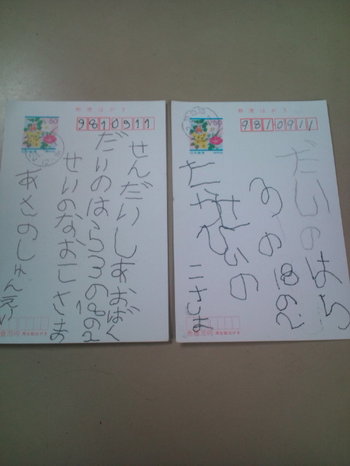 郵便はがき
50
9810911
せんだいしあおばく
だいのはら3の18の2
せいのなおこさま
あきのしゅん
郵便はがき
50
9810911
だいの
はら
3の
18の2
せいの
こさま